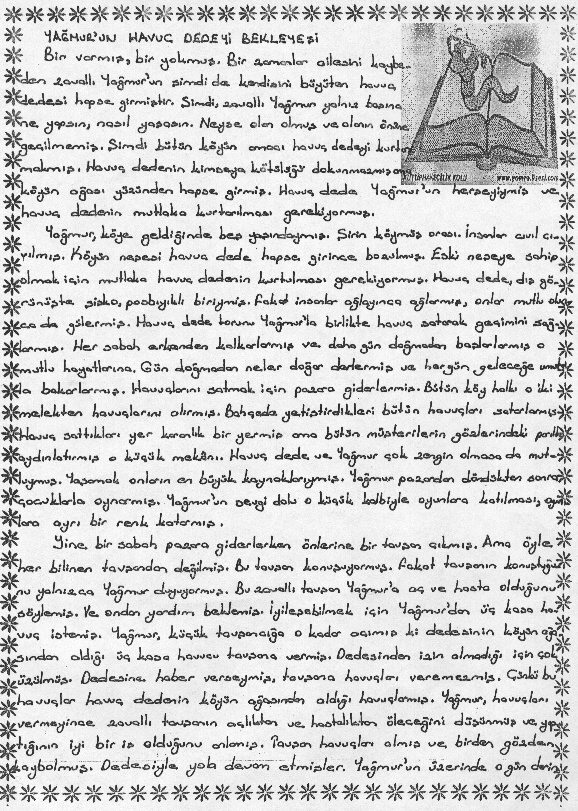 YAĞMUR'UN HAVUÇ DEDEYİ BEKLEYİŞİ
Bir varmış, bir yokmuş. Bir zamanlar ailesini kaybe-
den zavallı Yağmur'un şimdi de kendisini büyüten havuç
dedesi hapse girmiştir. Şimdi, zavallı Yağmur yalnız başına
ne yapsın, nasıl yaşasın. Neyse olan olmuş ve olanın önüne
geçilmemiş. Şimdi bütün köyün amacı havuç dedeyi kurtar
makmış. Havuç dedenin kimseye kötülüğü dokunmazmış ama
köyün ağası yüzünden hapse girmiş. Havuç dede Yağmur'un herşeyiymiş ve
havuç dedenin mutlaka kurtarılması gerekiyormuş.
Yağmur, köye geldiğinde beş yaşındaymış. Şirin köymüş orası. İnsanlar cıvıl cı-
vılmış. Köyün neşesi havuç dede hapse girince bozulmuş. Eski neşeye sahip
olmak için mutlaka havuç dedenin kurtulması gerekiyormuş. Havuç dede, dış gö-
rünüşte şişko, posbıyıklı biriymiş. Fakat insanlar ağlayınca ağlarmış, onlar mutlu olun
ca da gülermiş. Havuç dede torunu Yağmur'la birlikte havuç satarak geçimini sağ-
larmış. Her sabah erkenden kalkarlarmış ve daha gün doğmadan başlarlarmış o
mutlu hayatlarına. Gün doğmadan neler doğar derlermiş ve hergün geleceğe umut
la bakarlarmış. Havuçlarını satmak için pazara giderlermiş. Bütün köy halkı o iki
melekten havuçlarını alırmış. Bahçede yetiştirdikleri bütün havuçları satarlarmış.
Havuç sattıkları yer karanlık bir yermiş ama bütün müşterilerin gözlerindeki parıltı
aydınlatırmış o küçük mekânı. Havuç dede ve Yağmur çok zengin olmasa da mut-
luymuş. Yaşamak onların en büyük kaynaklarıymış. Yağmur pazardan döndükten sonra
çocuklarla oynarmış. Yağmur'un sevgi dolu o küçük kalbiyle oyunlara katılması, oyun
lara ayrı bir renk katarmış.
Yine bir sabah pazara giderlerken önlerine bir tavşan çıkmış. Ama öyle
her bilinen tavşandan değilmiş. Bu tavşan konuşuyormuş. Fakat tavşanın konuştuğu
nu yalnızca Yağmur duyuyormuş. Bu zavallı tavşan Yağmur'a aç ve hasta olduğunu
söylemiş. Ve ondan yardım beklemiş. İyileşebilmek için Yağmur'dan üç kasa ha-
vuç istemiş. Yağmur, küçük tavşancığa o kadar acımış ki dedesinin köyün ağa
sından aldığı üç kasa havucu tavşana vermiş. Dedesinden izin almadığı için çok
üzülmüş. Dedesine haber verseymiş, tavşana havuçları veremezmiş. Çünkü bu
havuçlar havuç dedenin köyün ağasından aldığı havuçlarmış. Yağmur, havuçları
vermeyince zavallı tavşanın açlıktan ve hastalıktan öleceğini düşünmüş ve yap
tığının iyi bir iş olduğunu anlamış. Tavşan havuçları almış ve birden gözden
kaybolmuş. Dedesiyle yola devam etmişler. Yağmur'un üzerinde o gün derin
KÜTÜPHANECİLİK KOLU